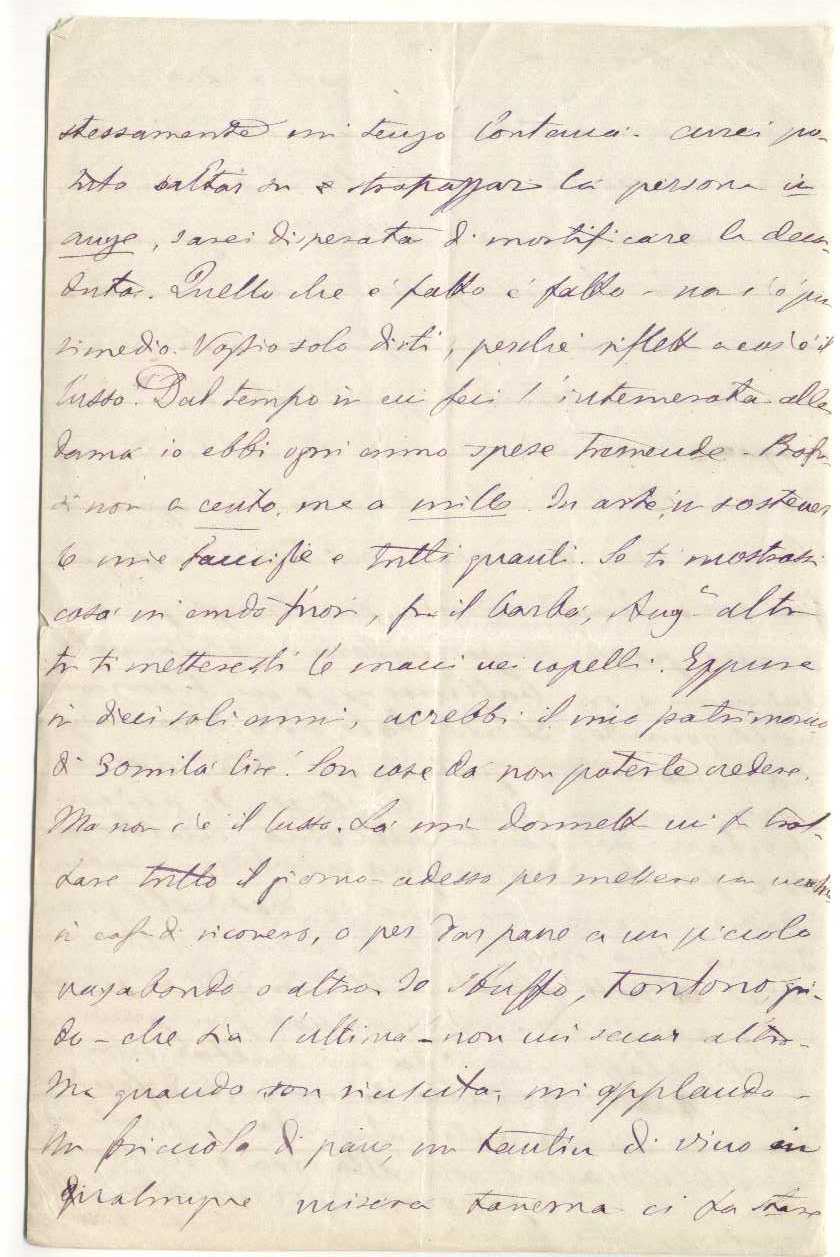 stessamente mi tengo lontana - avrei po-
tuto saltar su e strapazzar la persona in
auge, sarei disperata di mortificare la deca-
duta. Quello che è fatto è fatto - non c'è più
rimedio. Voglio solo dirti, perchè rifletta cos'è il
lusso. Dal tempo in cui feci l'intemerata alla
dama io ebbi ogni anno spese tremende -
di non a cento, ma a mille. In arte, in sostener
le mie famiglie e tutti quanti. Se ti mostrassi
cosa mi andò fuori, fra il barba, Aug.ª altri
tu ti metteresti le mani nei capelli. Eppure
in dieci soli anni, accrebbi il mio patrimonio
di 30mila lire! Son cose da non poterle credere.
Ma non c'è il lusso. La mi fa trot-
tare tutto il giorno - adesso per mettere un
in casa di ricovero, o per dar pane a un piccolo
vagabondo o altro. Io sbuffo, tontono, gri-
do - che sia l'ultima - non mi seccar altro -
Ma quando son riuscita, mi applaudo -
Un briciolo di pane, un tantin di vino in
qualunque misera taverna ci fa stare